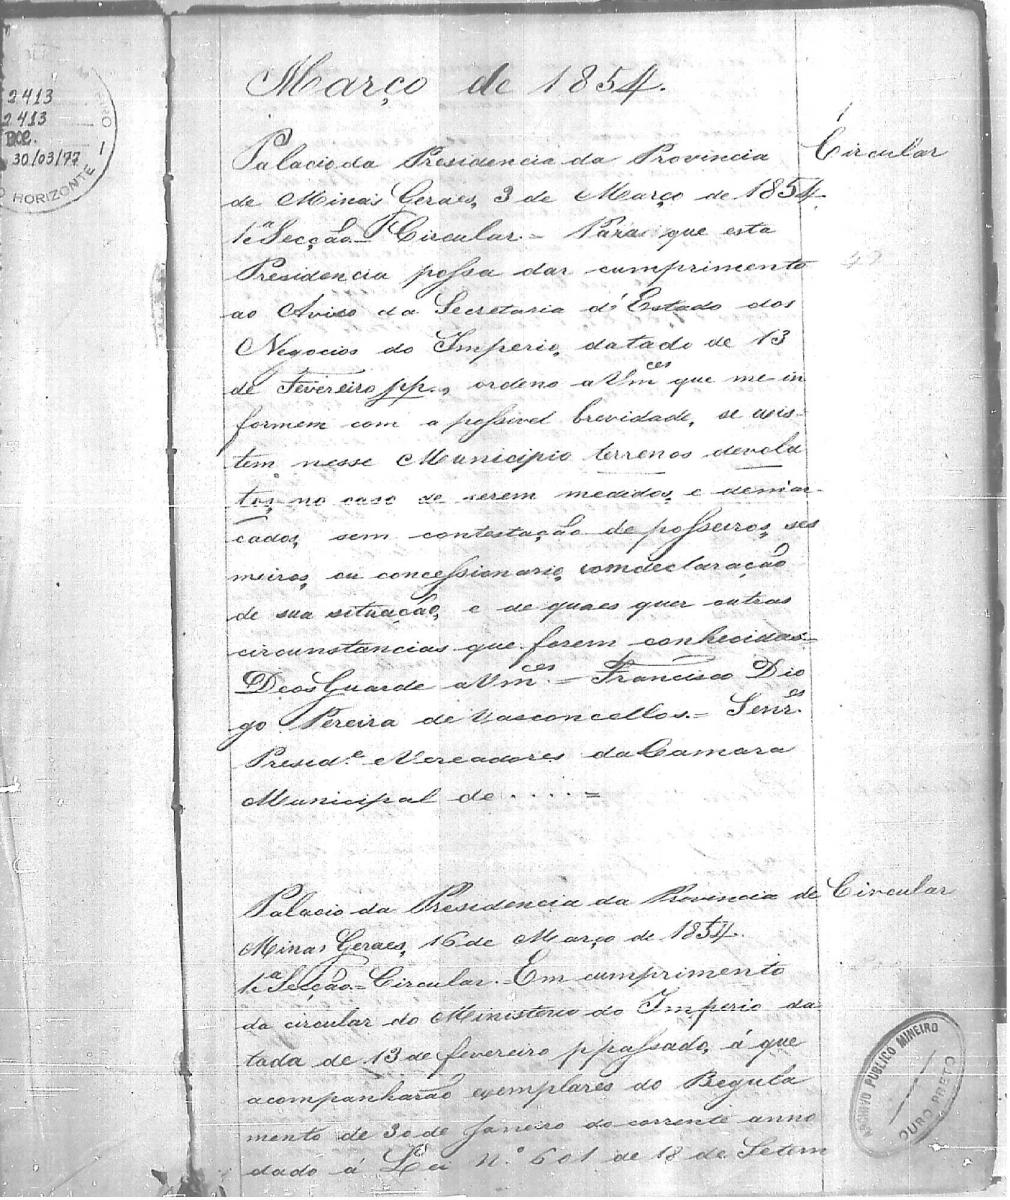 2413
2413
30/03/77
O HORIZONTE
Março de 1854.
Circular
Palacio da Presidencia da Provincia
de Minas Geraes, 3 de Março de 1854.
1ª Secção = Circular = Para que esta
Presidencia possa dar cumprimento
ao Aviso da Secretaria d'Estado dos
Negocios do Imperio, datado de 13
de Fevereiro pp., ordeno a Vmces que me in
formem com a possivel brevidade, se exis-
tem nesse Municipio terrenos devolu
tos, no caso de serem medidos, e demar-
cados, sem contestação de posseiros, ses
meiros, ou concessionario, com declaração
de sua situação, e de quaes quer outras
circunstancias que forem conhecidas.
Deos Guarde a Vmces. = Francisco Dio
go Pereira de Vasconcellos. = Senres.
Preside. e Vereadores da Camara
Municipal de . . . . =
Circular
Palacio da Presidencia da Provincia de
Minas Geraes, 16 de Março de 1854.
1ª Secção = Circular. Em cumprimento
da circular do Ministerio do Imperio da
tada de 13 de fevereiro p passado, á que
acompanharão exemplares do Regula
mento de 30 de Janeiro do corrente anno
dado á Lei N.º 601 de 18 de Setem
ARCHIVO PUBLICO MINEIRO
OURO PRETO